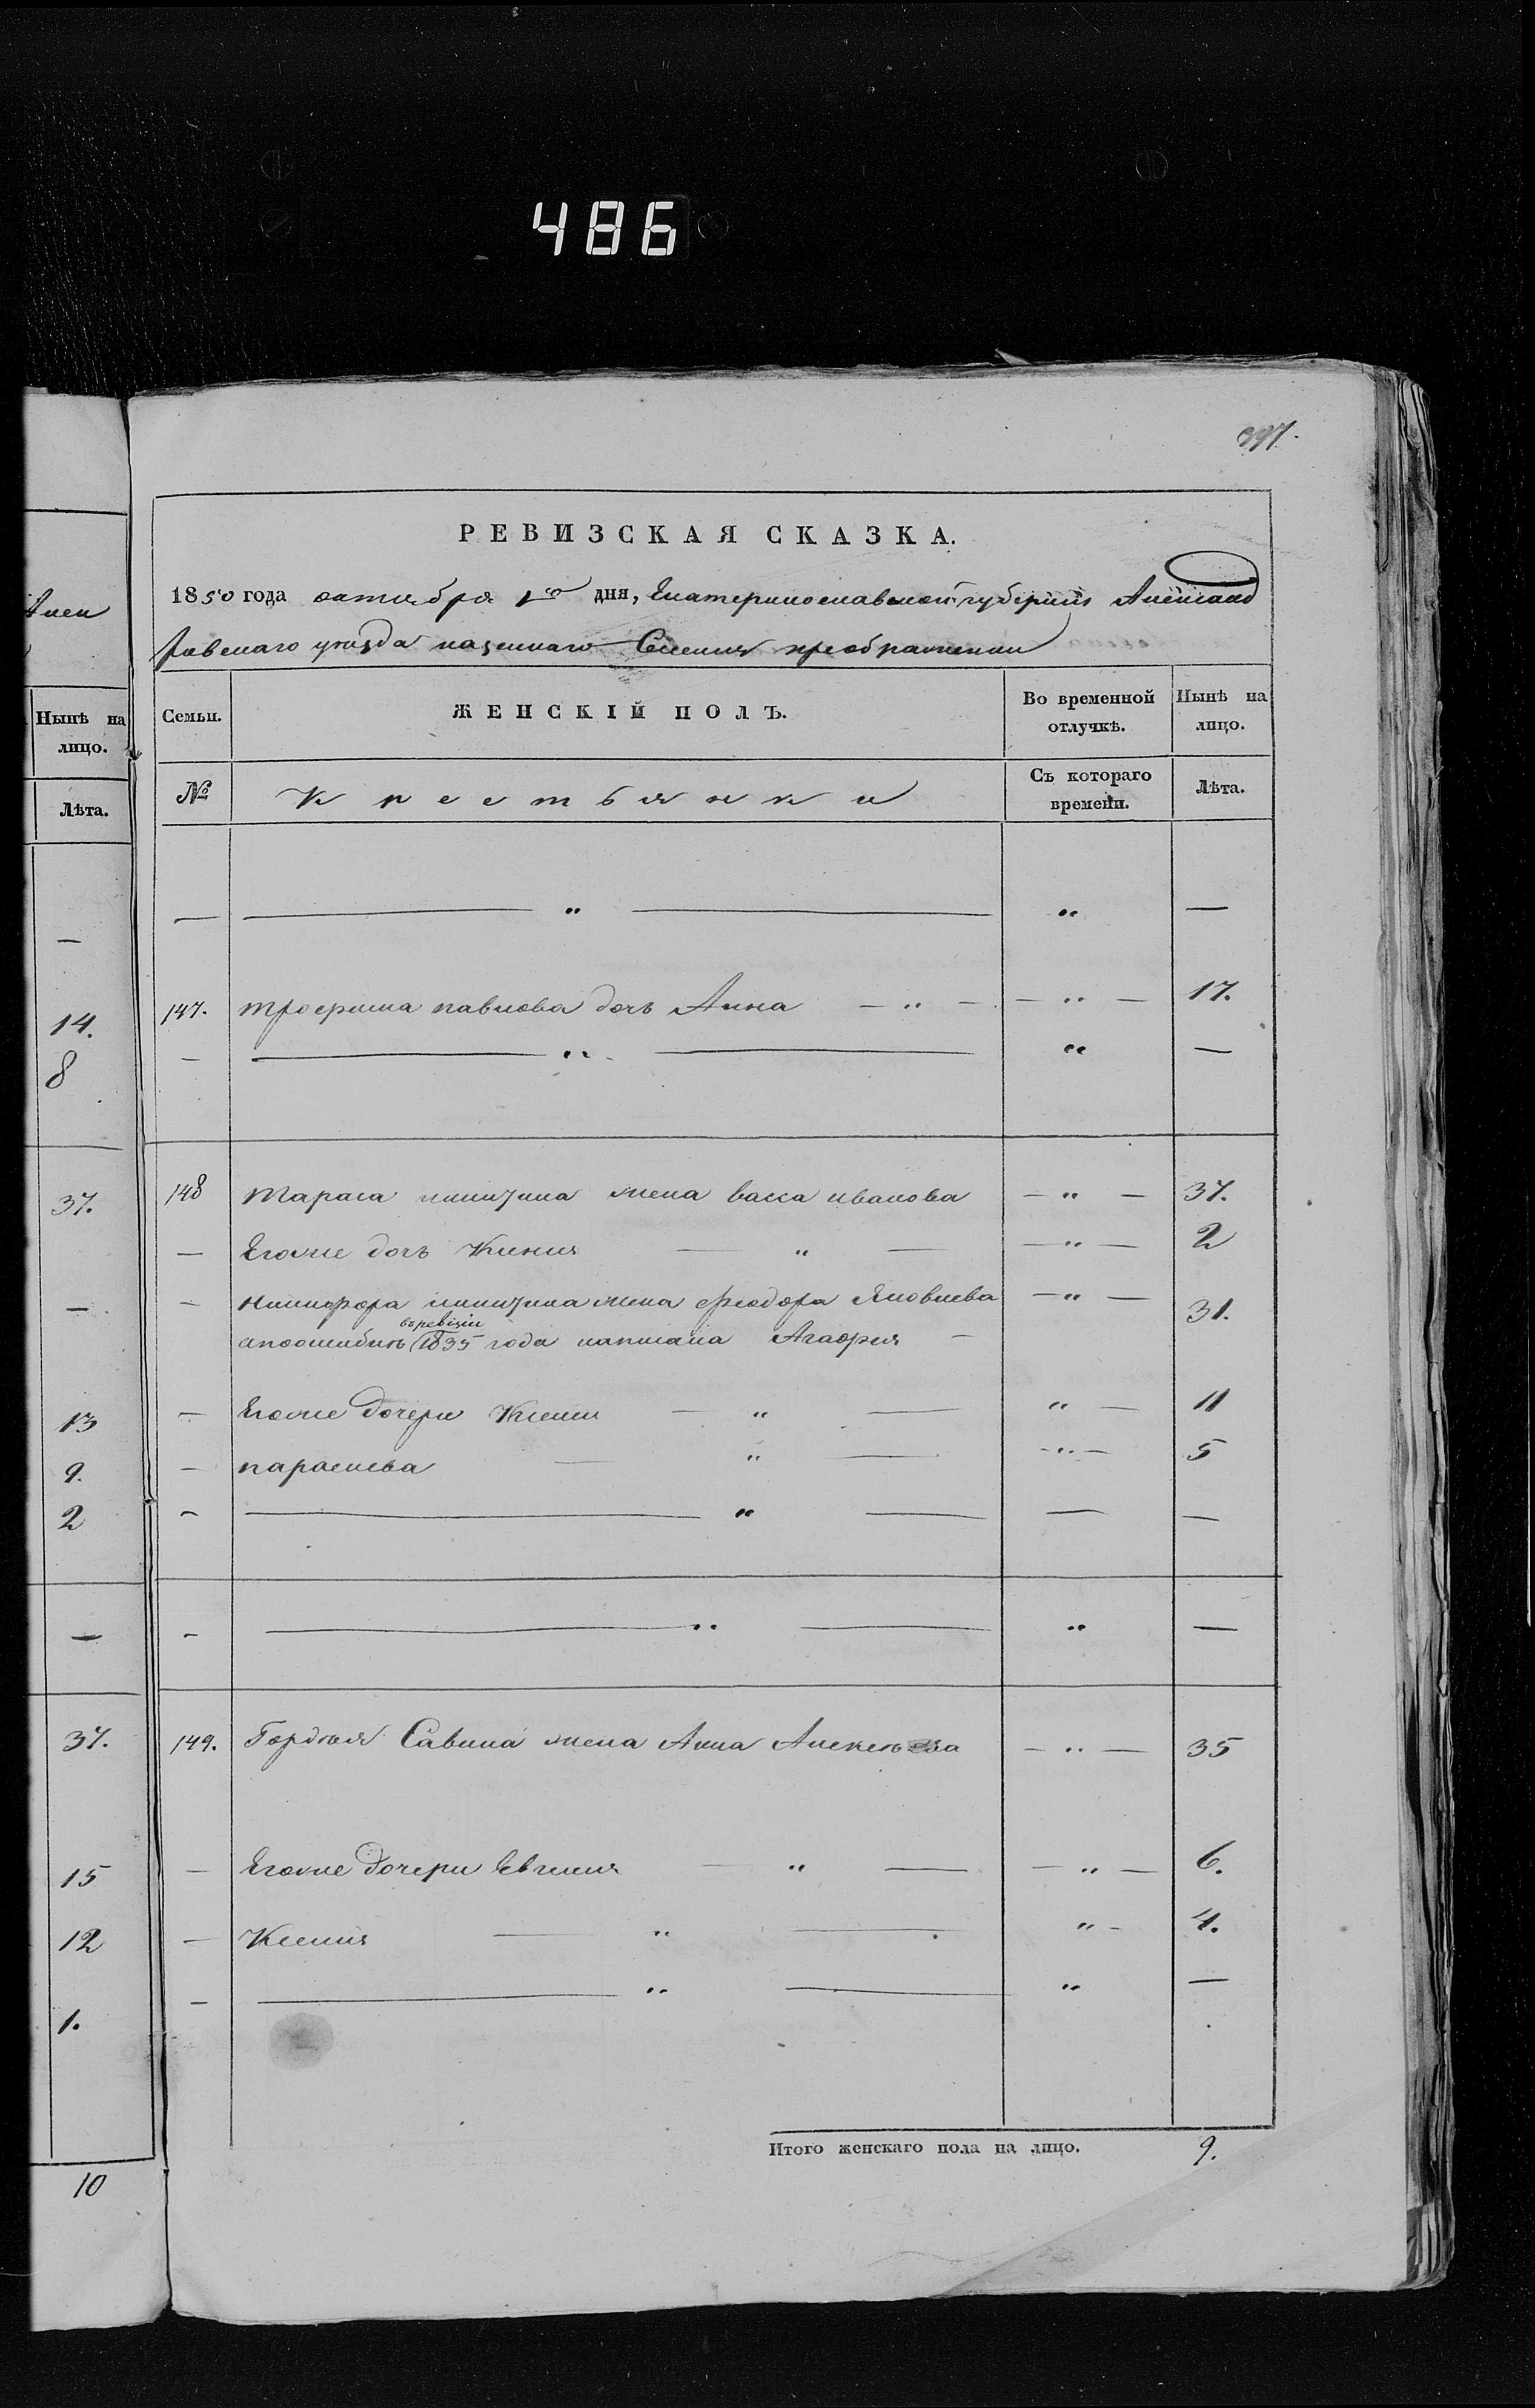 486
397.
Анен
Нынѣ на
лицо.
Лѣта.
—
14.
8
37.
—
13
9.
2
—
37.
15
12
1.
10
РЕВИЗСКАЯ СКАЗКА.
1850 года октября 1го дня, Екатеринославской губернии Александ
ровскаго уѣзда казеннаго Селения преображенки
Семьи.
ЖЕНСКІЙ ПОЛЪ.
Во временной
отлучкѣ.
Нынѣ на
лицо.
№
Крестьянки
Съ котораго
времени.
Лѣта.
— — " — " —
147. трофима павлова дочь Анна — " — — " — 17.
— — " — " —
148 Тараса жена васса иванова — " — 37.
— Егоже дочь Ксения — " — — " — 2
— никифора жена феодора Яковлева — " — 31.
въ ревізіи
апоошибкѣ 1835 года написана Агафия —
— Егоже дочери Ксения — " — " — 11
— параскева — " — — " — 5
— — " — — —
— — " — " —
149. Гордѣя Савина жена Анна Алексѣева — " — 35
— Егоже дочери Евгения " — — " — 6.
— Ксения — " — " — 4.
— — " — " —
Итого женскаго пола на лицо. 9.